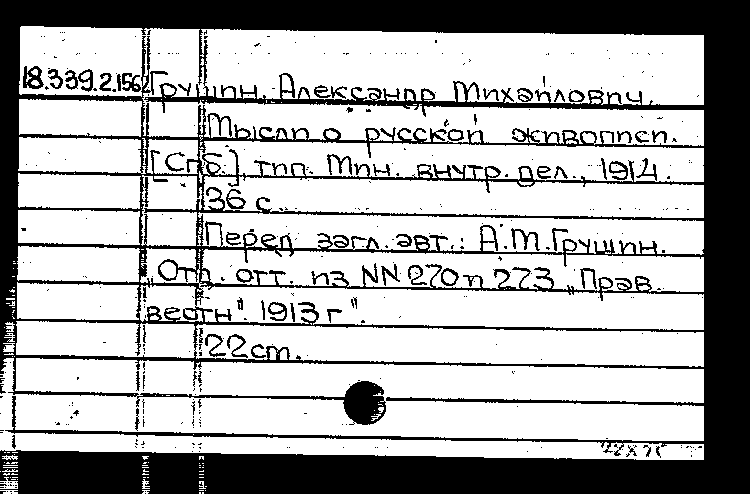 18.339.2.156 Грушин, Александр Михайлович.
Мысли о русской живописи.
[Спб.], тип. Мин. внутр. дел., 1914.
36 с.
Перед загл. авт.: А.М.Грушин.
"Отд. отт. из NN 270 и 273 „Прав.
вестн" 1913 г".
22 cm.